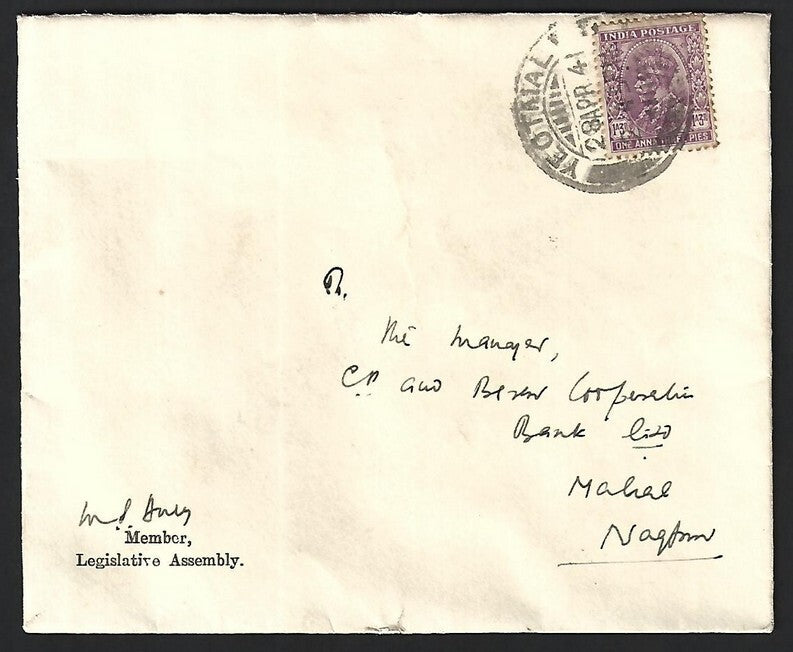 INDIA POSTAGE
1A3P 1A3P
ONE ANNA THREE PIES
YEOTMAL
28 APR 41
To,
The Manager,
C.P and Berar Cooperative
Bank Ltd
Mahal
Nagpur
Member,
Legislative Assembly.